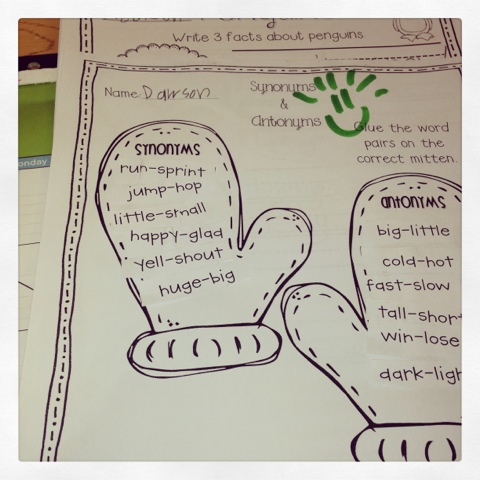 Write 3 facts about penguins
Name: Dawson
Synonyms
&
Antonyms
Glue the word
pairs on the
correct mitten.
SYNONYMS
run-sprint
jump-hop
little-small
happy-glad
yell-shout
huge-big
ANTONYMS
big-little
cold-hot
fast-slow
tall-shor
win-lose
dark-ligh
onday